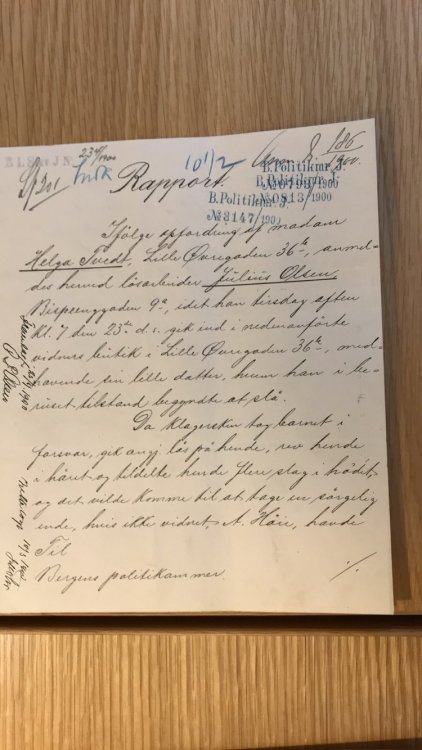 234/1900
101/2
186
1900.
Rapport.
B. Politikmr. J.
№0793/1900
B. Politikmr. J.
№0813/1900
B. Politikmr. J.
№3147/190
Ifölge opfordring af madam
Helga Tvedt, Lille Øvregaden 36 b, anmel-
des herved lösarbeider Julius Olsen,
Bispeenggaden 9 a, idet han tirsdag aften
kl. 7 den 23de d. s. gik ind i nedenanförte
vidners butik i Lille Øvregaden 36 b, med-
havende sin lille datter, hvem han i be-
ruset tilstand begyndte at slå.
Da klagersken tog barnet i
forsvar, gik angj. lös på hende, rev hende
i håret og tildelte hende flere slag i hodet,
og det vilde komme til at tage en sörgelig
ende, hvis ikke vidnet, A. Håre, havde
Til
Bergens politikammer.
·/.